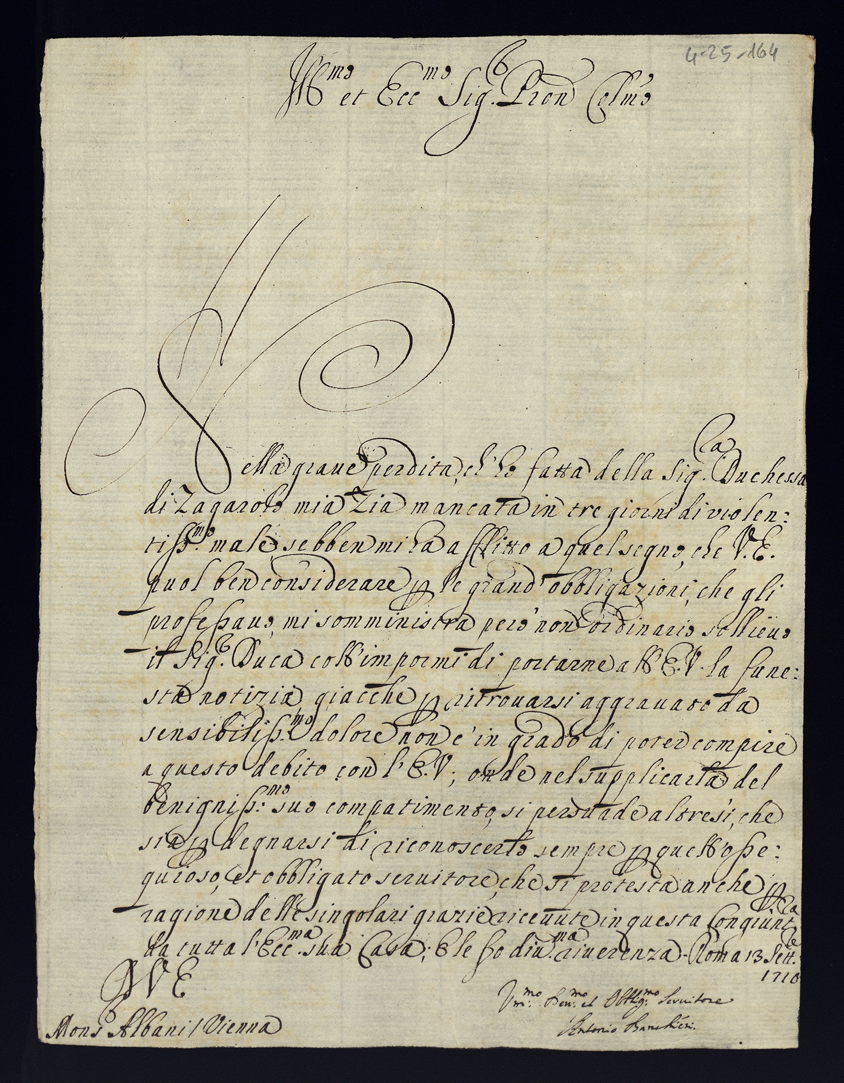 4-25-164
Ill.mo et Ecc.mo Sig.r Pron Colmo
Nella grave perdita, ch'ho fatta della Sig.ra Duchessa
di Zagarolo mia Zia mancata in tre giorni di violen:
tiss.mo male, sebben mi ha afflitto a quel segno, che V.E.
puol ben considerare p le grand' obbligazioni, che gli
professavo, mi somministra però non ordinario sollievo
il Sig.r Duca coll'impormi di portarne all'E.V. la fune:
sta notizia, giacche p ritrovarsi aggravato da
sensibiliss.mo dolore non è in grado di poter compire
a questo debito con l'E.V; onde nel supplicarla del
benigniss:mo suo compatimento, si persuade altresì, che
sia p degnarsi di riconoscerlo sempre p quell'osse:
quioso, et obbligato servitore, che si protesta anche p la
ragione delle singolari grazie ricevute in questa Congiunt.re
da tutta l'Ecc.ma sua Casa; E le fo div.ma riverenza. Roma 13 Sett:
1710
V E
Mons.r Albani / Vienna
Um:mo Dev:mo et Obblig:mo Servitore
Antonio Banchieri